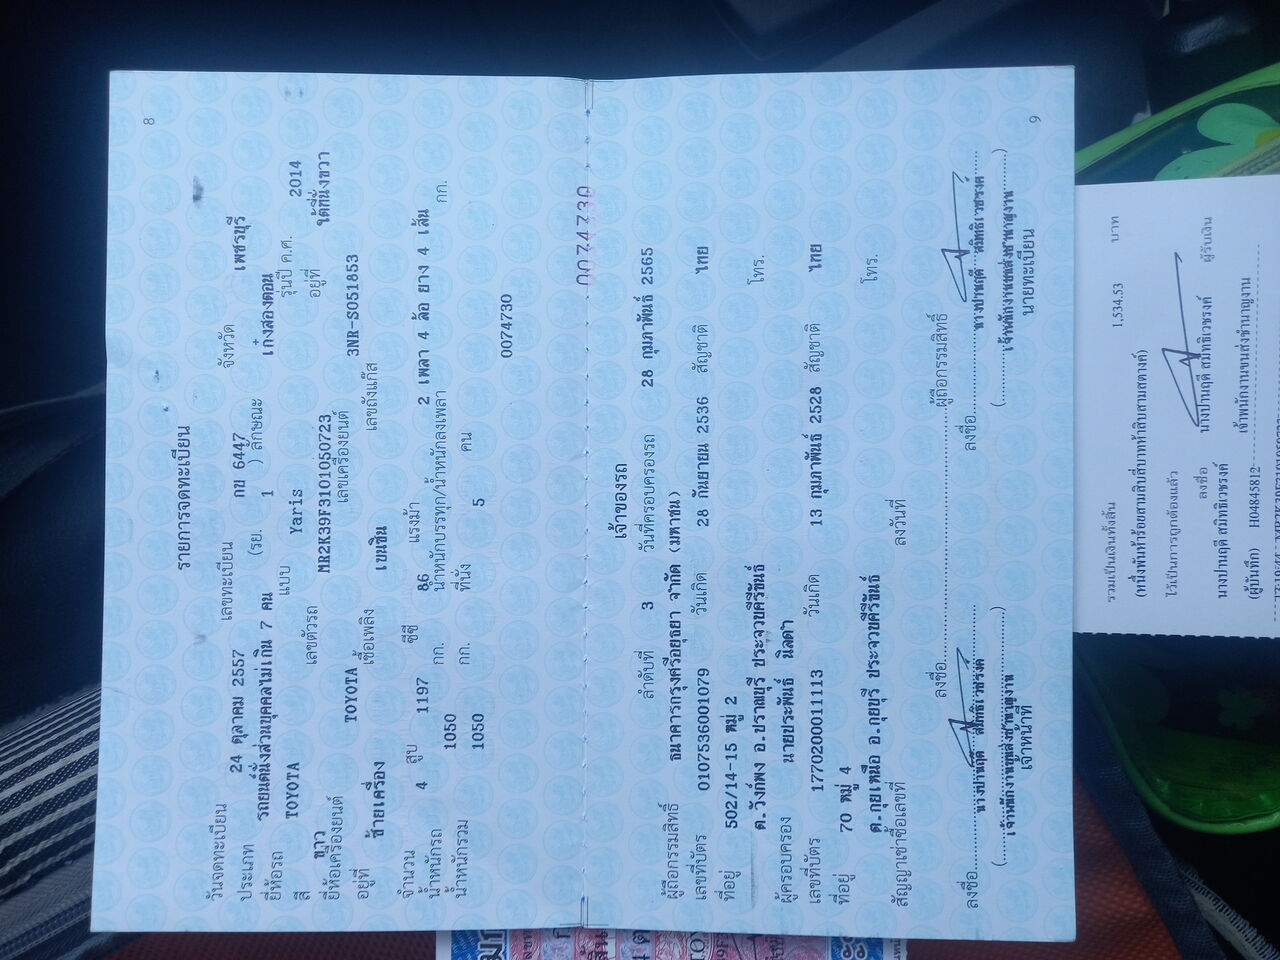 8
รายการจดทะเบียน
วันจดทะเบียน 24 ตุลาคม 2557 เลขทะเบียน กข 6447 จังหวัด เพชรบุรี
ประเภท รถยนต์นั่งส่วนบุคคลไม่เกิน 7 คน (รย. 1 ) ลักษณะ เก๋งสองตอน
ยี่ห้อรถ TOYOTA แบบ Yaris รุ่นปี ค.ศ. 2014
สี ขาว เลขตัวรถ MR2K39F3101050723 อยู่ที่ ใต้ที่นั่งขวา
ยี่ห้อเครื่องยนต์ TOYOTA เลขเครื่องยนต์ 3NR-S051853
อยู่ที่ ซ้ายเครื่อง เชื้อเพลิง เบนซิน เลขถังแก๊ส
จำนวน 4 สูบ 1197 ซีซี 86 แรงม้า 2 เพลา 4 ล้อ ยาง 4 เส้น
น้ำหนักรถ 1050 กก. น้ำหนักบรรทุก/น้ำหนักลงเพลา กก.
น้ำหนักรวม 1050 กก. ที่นั่ง 5 คน
0074730
0074730
เจ้าของรถ
ลำดับที่ 3 วันที่ครอบครองรถ 28 กุมภาพันธ์ 2565
ผู้ถือกรรมสิทธิ์ ธนาคารกรุงศรีอยุธยา จำกัด (มหาชน)
เลขที่บัตร 0107536001079 วันเกิด 28 กันยายน 2536 สัญชาติ ไทย
ที่อยู่ 502/14-15 หมู่ 2 โทร.
ต.วังก์พง อ.ปราณบุรี ประจวบคีรีขันธ์
ผู้ครอบครอง นายประพันธ์ นิลดำ
เลขที่บัตร 1770200011113 วันเกิด 13 กุมภาพันธ์ 2528 สัญชาติ ไทย
ที่อยู่ 70 หมู่ 4 โทร.
ต.กุยเหนือ อ.กุยบุรี ประจวบคีรีขันธ์
สัญญาเช่าซื้อเลขที่ ลงวันที่
ลงชื่อ ผู้ถือกรรมสิทธิ์
ลงชื่อ นางปานฤดี สมิทธิเวชรงค์ ลงชื่อ นางปานฤดี สมิทธิเวชรงค์
(เจ้าพนักงานขนส่งชำนาญงาน) (เจ้าพนักงานขนส่งชำนาญงาน)
เจ้าหน้าที่ นายทะเบียน
9
รวมเป็นเงินทั้งสิ้น 1,534.53 บาท
(หนึ่งพันห้าร้อยสามสิบสี่บาทห้าสิบสามสตางค์)
ไว้เป็นการถูกต้องแล้ว
ลงชื่อ นางปานฤดี สมิทธิเวชรงค์ ผู้รับเงิน
นางปานฤดี สมิทธิเวชรงค์ เจ้าพนักงานขนส่งชำนาญงาน
(ผู้บันทึก) H04845812